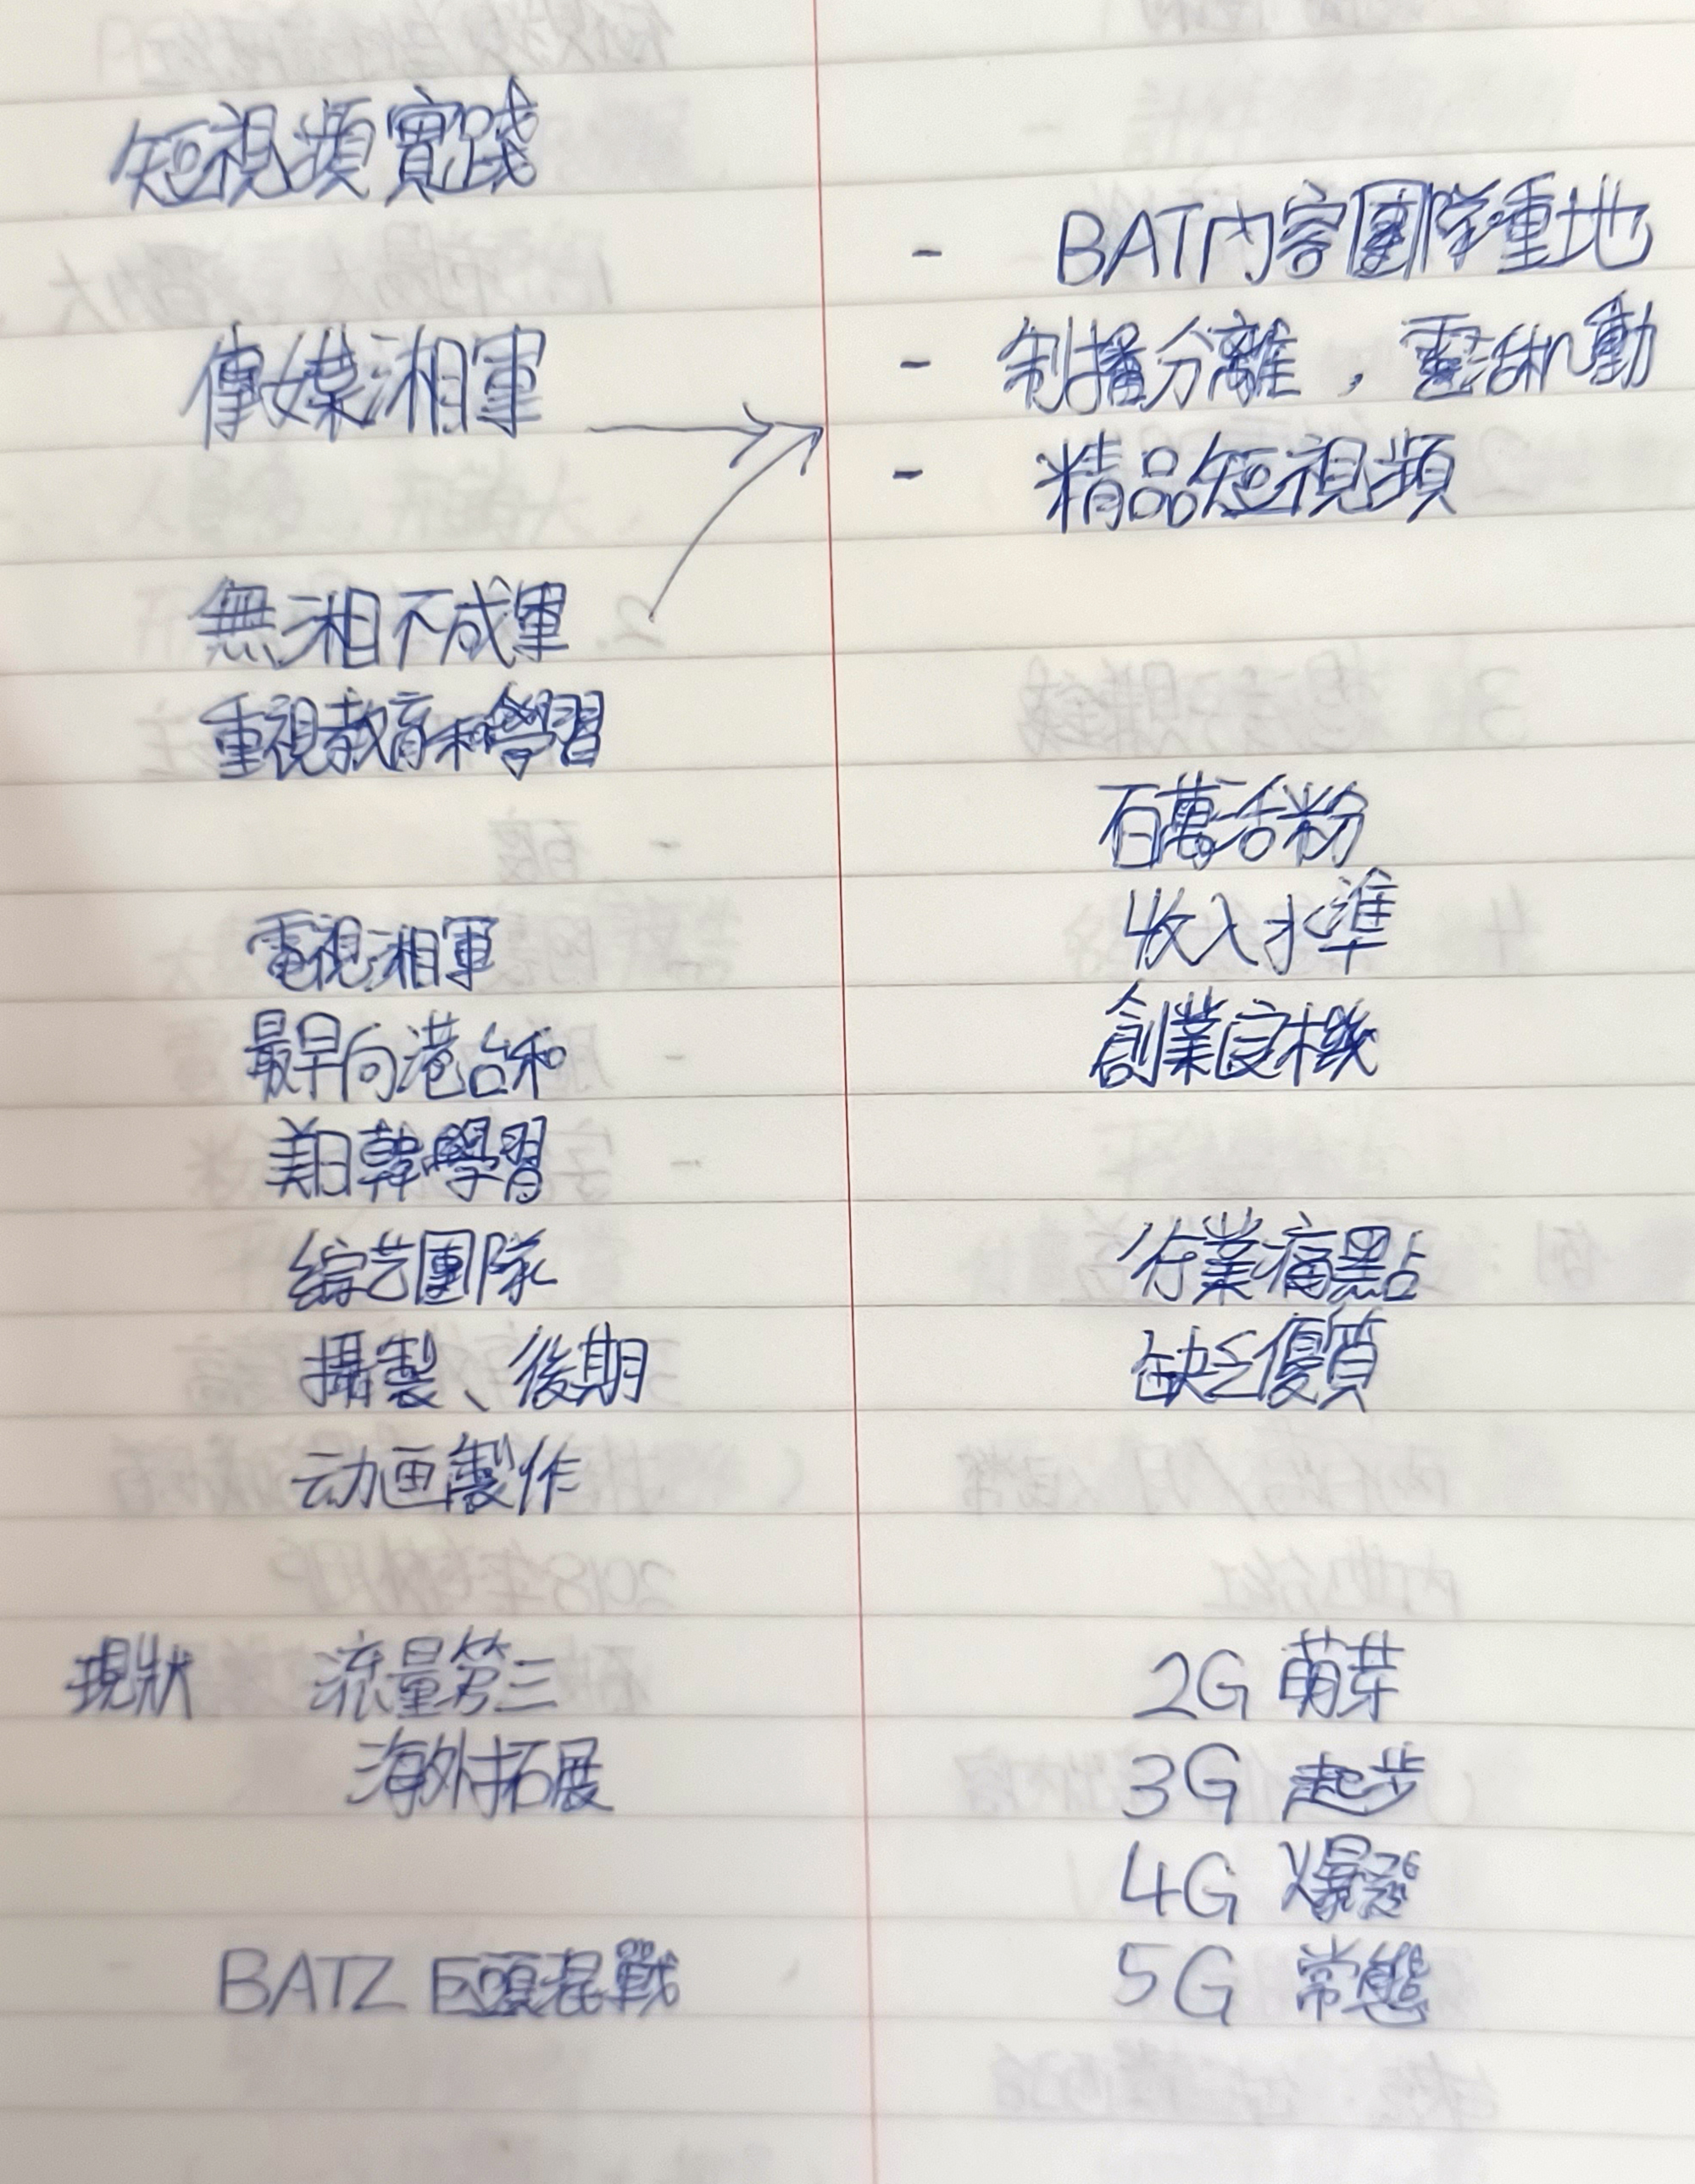 短視頻實踐
傳媒湘軍
無湘不成軍
重視教育和學習
電視湘軍
最早向港台和
美日韓學習
綜艺團隊
攝製、後期
动画製作
現狀 流量第三
海外拓展
BATZ 巨頭混戰
- BAT內容團隊重地
- 制播分離，靈活机動
- 精品短視頻
百萬活粉
收入水準
創業良機
行業痛點
缺乏優質
2G 萌芽
3G 起步
4G 爆發
5G 常態